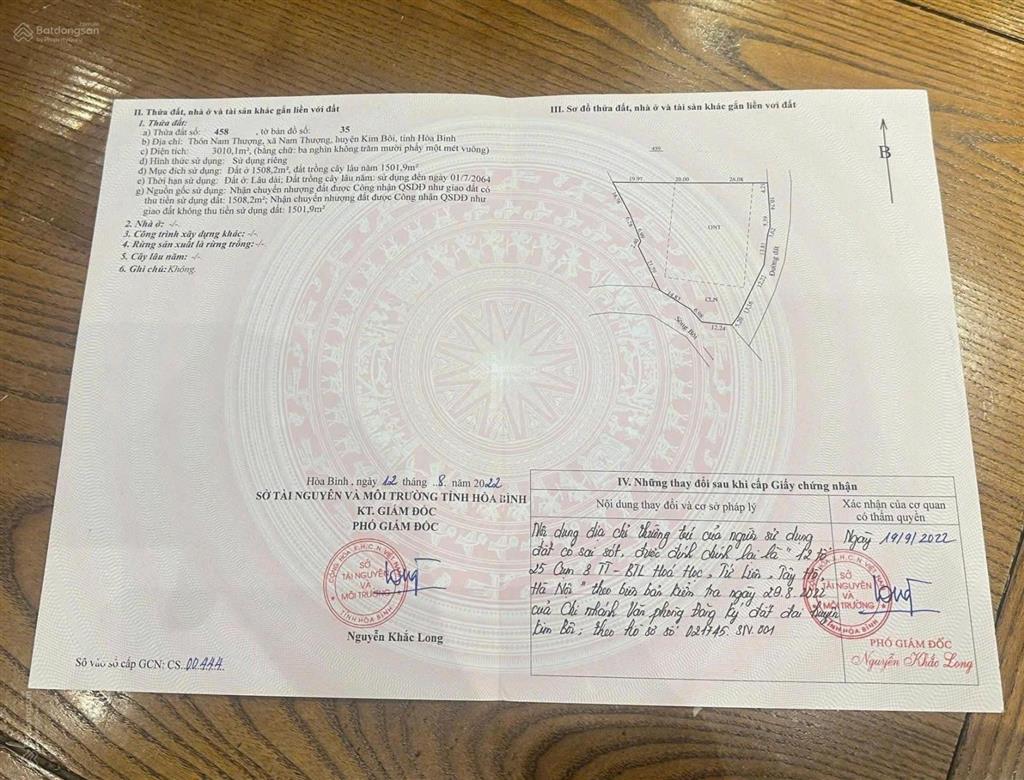 Batdongsan
by PropertyGuru
II. Thửa đất, nhà ở và tài sản khác gắn liền với đất
1. Thửa đất:
a) Thửa đất số: 458 , tờ bản đồ số: 35
b) Địa chỉ: Thôn Nam Thượng, xã Nam Thượng, huyện Kim Bôi, tỉnh Hòa Bình
c) Diện tích: 3010,1m², (bằng chữ: ba nghìn không trăm mười phẩy một mét vuông)
d) Hình thức sử dụng: Sử dụng riêng
đ) Mục đích sử dụng: Đất ở 1508,2m², đất trồng cây lâu năm 1501,9m²
e) Thời hạn sử dụng: Đất ở: Lâu dài; Đất trồng cây lâu năm: sử dụng đến ngày 01/7/2064
g) Nguồn gốc sử dụng: Nhận chuyển nhượng đất được Công nhận QSDĐ như giao đất có
thu tiền sử dụng đất: 1508,2m²; Nhận chuyển nhượng đất được Công nhận QSDĐ như
giao đất không thu tiền sử dụng đất: 1501,9m²
2. Nhà ở: -/-
3. Công trình xây dựng khác: -/-
4. Rừng sản xuất là rừng trồng:-/-
5. Cây lâu năm: -/-
6. Ghi chú:Không.
III. Sơ đồ thửa đất, nhà ở và tài sản khác gắn liền với đất
B
459
19.97 20.00 26.08
4.29
ONT
Đường đất
CLN
14.83
6.98
12.24
Sông Bôi
Hòa Bình , ngày 12 tháng ..8. năm 2022
SỞ TÀI NGUYÊN VÀ MÔI TRƯỜNG TỈNH HÒA BÌNH
KT. GIÁM ĐỐC
PHÓ GIÁM ĐỐC
CỘNG HÒA X.H.C.N VIỆT NAM
SỞ
TÀI NGUYÊN
VÀ
MÔI TRƯỜNG
TỈNH HÒA BÌNH
Nguyễn Khắc Long
Số vào sổ cấp GCN: CS.00444
IV. Những thay đổi sau khi cấp Giấy chứng nhận
Nội dung thay đổi và cơ sở pháp lý
Xác nhận của cơ quan
có thẩm quyền
Nội dung địa chỉ thường trú của người sử dụng
đất có sai sót, được đính chính lại là " 12 tổ
25 Cụm 8 TT - BTL Hoá Học, Tứ Liên, Tây Hồ,
Hà Nội " theo biên bản kiểm tra ngày 29.8.2022
của Chi nhánh Văn phòng Đăng ký đất đai huyện
Kim Bôi; theo hồ sơ số 021745.
Ngày 19/9/2022
SỞ
TÀI NGUYÊN
VÀ
MÔI TRƯỜNG
TỈNH HÒA BÌNH
PHÓ GIÁM ĐỐC
Nguyễn Khắc Long